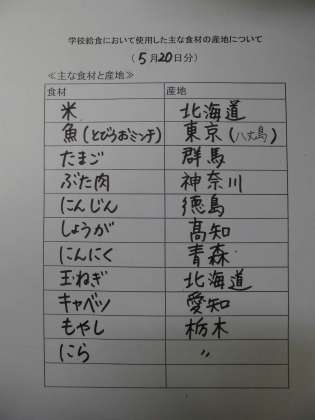 学校給食において使用した主な食材の産地について
(5月20日分)
≪主な食材と産地≫
食材 産地
米 北海道
魚(とびうおミンチ) 東京(八丈島)
たまご 群馬
ぶた肉 神奈川
にんじん 徳島
しょうが 高知
にんにく 青森
玉ねぎ 北海道
キャベツ 愛知
もやし 栃木
にら 〃